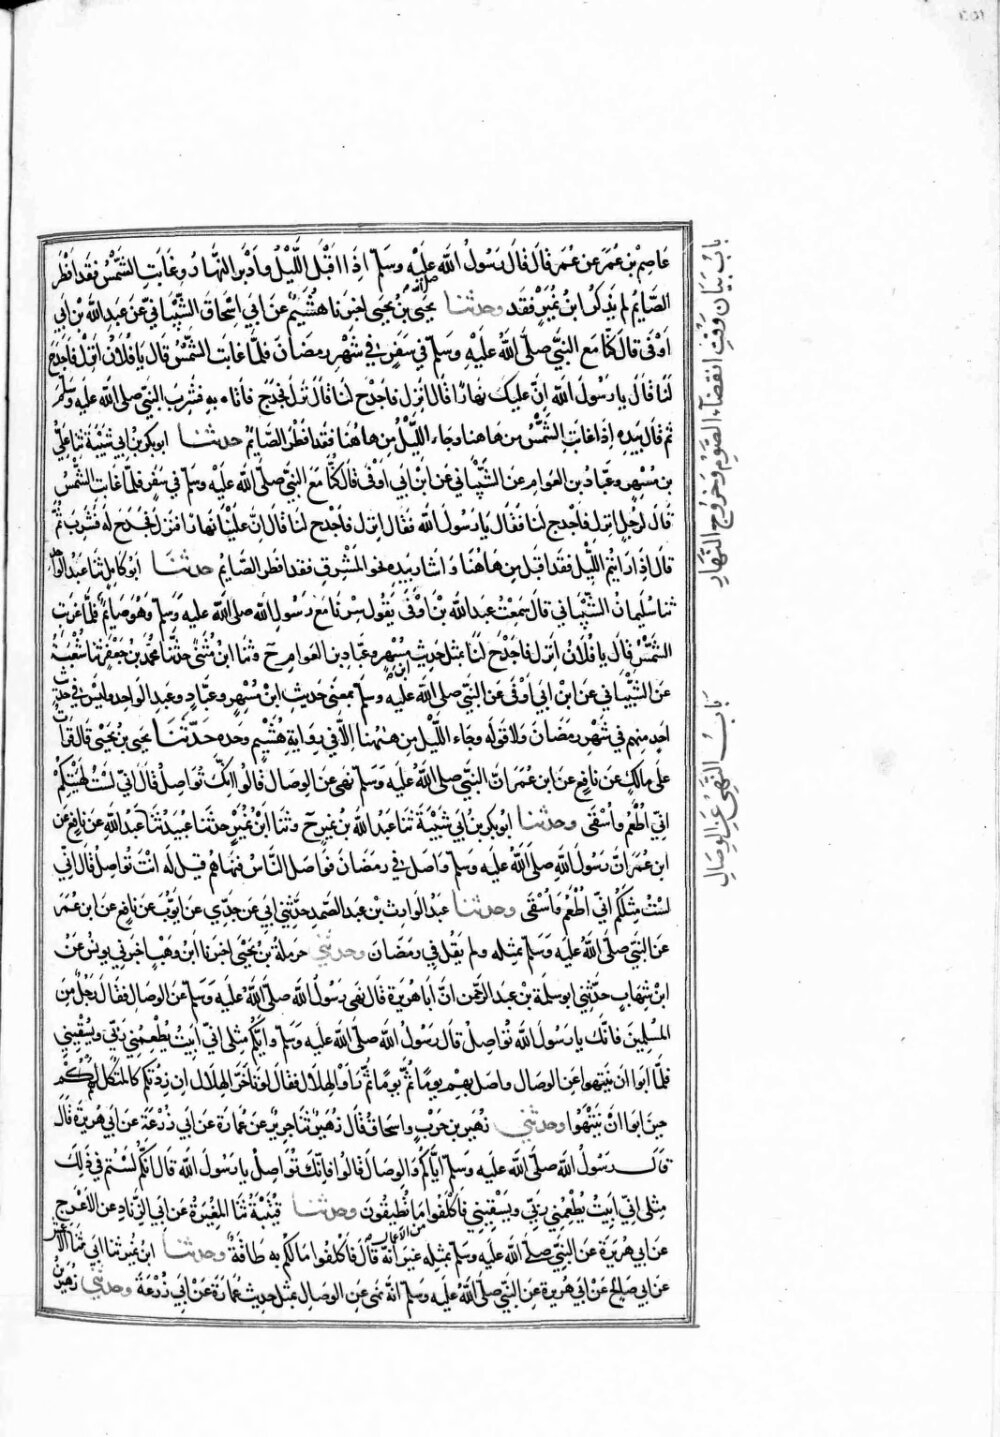 عَاصِمِ بْنِ عُمَرَ عَنْ عُمَرَ قَالَ قَالَ رَسُولُ اللَّهِ صلى الله عَلَيْهِ وَسَلَّمَ اِذَا اَقْبَلَ اللَّيْلُ وَاَدْبَرَ النَّهَارُ وَغَابَتِ الشَّمْسُ فَقَدْ اَفْطَرَ
الصَّايِمُ لم يَذكُر ابنُ نُمَيْرٍ فَقَد وحدثنا يحيى بنُ يحيى اخبرنا هُشَيمٌ عَن اَبِي اِسْحَاقَ الشَّيْبَانِيِّ عَن عَبدِ اللَّه بْنِ اَبي
اَوْفَى قَالَ كُنَّا مَعَ النَّبِيِّ صلَّى اللَّهُ عَلَيْهِ وَسَلَّمَ فِي سَفَرٍ فِي شَهْرِ رَمَضَانَ فَلَمَّا غَابَت الشَّمْسُ قَالَ يَا فُلَانُ انْزِل فَاجْدَحْ
لَنَا قَالَ يا رَسُولَ اللَّه اِنَّ عَلَيكَ نَهَارًا قَالَ انْزِل فَاجْدَحْ لَنَا قَالَ نَزَلَ فَجَدَحَ فَاَتَاه بِهِ فَشَرِبَ النَّبيُّ صلى الله عليه وَسَلَّمَ
ثم قَالَ بِيَدِهِ اِذَا غَابَتِ الشَّمْسُ مِن هَاهُنَا وَجَاءَ اللَّيْلُ مِن هَاهُنَا فَقَد اَفطَرَ الصَّايِمُ حدثنا ابوبكر بنُ ابي شَيْبَةَ ثنا عَلِيُّ
بن مُسْهِرٍ وعبَّادُ بن العَوامِ عن الشَّيْبَانِي عَن ابنِ اَبِي اَوْفَى قَالَ كُنَّا مَعَ النبيِّ صلَّى اللَّهُ عَلَيْهِ وَسلَّمَ فِي سَفَرٍ فَلَمَّا غَابَت الشَّمْسُ
قَالَ لِرَجُلٍ انزِل فَاجدَح لَنا فَقَالَ يا رَسُولَ اللَّه فَقَالَ انزِل فَاجْدَح لَنا قَالَ اِنَّ عَلَيْنَا نَهَارًا فَنَزَلَ فَجَدَحَ لَهُ فَشَرِبَ ثُمَّ
قَالَ اِذَا رَاَيْتُمُ اللَّيْلَ فَقَد اَقبَلَ مِن هَاهُنَا وَاَشَارَ بِيَدِهِ نَحوَ المَشْرِقِ فَقَد اَفطَرَ الصَّايِمُ حدثنا ابُو كَامِلٍ ثَنَا عبدُ الواحد
ثنا سُلَيْمَانُ الشَّيْبَانِي قَالَ سَمِعْتُ عَبدَ اللَّه بْنَ اَوْفَى يَقُولُ سِرْنَا مَعَ رَسُولِ اللَّهِ صلى اللَّه عَلَيه وَسَلَّمَ وَهُوَ صَايِمٌ فَلَمَّا غَرَبَت
الشَّمْسُ قَالَ يا فُلانُ انزِل فَاجْدَحْ لَنَا بمثل حَدِيثِ ابن مُسْهِرٍ وعَبَّادِ بن العَوامِ ح وثنا ابن مُثَنَّى حدثَنا محمد بن جَعْفَرٍ ثنا شُعْبَةُ
عَنِ الشَّيْبَانِي عَن ابْنِ اَبِي اَوْفَى عَن النَّبِيِّ صلَّى اللَّه عَلَيه وسَلَّمَ بمعنى حَديث ابن مُسْهِرٍ وعبَّادٍ وعَبد الواحد وليسَ في حديث
اَحَدٍ مِنهم في شَهْرِ رَمَضَان وَلا قَوْلُه وَجَاءَ اللَّيْلُ مِن هَهُنا اِلَّا فِي رِوَايَةِ هُشَيمٍ وَحدَه حَدَّثَنا يحيى بن يَحْيَى قَالَ قَرَاْتُ
عَلَى مَالِكٍ عَن نَافِعٍ عَن ابن عُمَرَ اَنَّ النَّبِيَّ صلَّى اللَّهُ عَلَيه وَسَلَّمَ نَهَى عَن الوِصَالِ قَالُوا اِنَّكَ تُوَاصِلُ قَالَ اِنِّي لَسْتُ كَهَيئَتِكُمْ
اِنِّي اُطْعَمُ وَاُسْقَى وحدثنا ابُو بكرِ بنُ اَبِي شَيْبَةَ ثَنَا عَبدُ اللَّه بن نُمَيرٍ ح وثنا ابْنُ نُمَيرٍ حدثنا عُبَيدُ اللَّه عَن نَافِعٍ عَن
ابن عُمَرَ اَنَّ رَسُولَ اللَّهِ صلى اللَّهُ عَلَيه وسَلَّمَ وَاصَلَ فِي رَمَضَانَ فَوَاصَلَ النَّاسُ فَنَهَاهُم قيل له اَنْتَ تُوَاصِلُ قَالَ اِنِّي
لَسْتُ مِثلَكُمْ اِنِّي اُطْعَمُ وَاُسْقَى وحدثنا عبدُ الوارث بن عبدِ الصَّمد حدَّثَنِي اَبِي عَن جَدِّي عَن اَيُّوبَ عَن نَافِعٍ عَن ابن عُمَرَ
عَن النَّبِيِّ صلَّى اللَّهُ عَلَيه وَسَلَّمَ بمثله ولم يَقُل فِي رَمَضَانَ وحدثني حرملةُ بن يَحْيَى اخبرنا ابنُ وَهْبٍ اخبَرنِي يُونُسُ عَن
ابْنِ شِهَابٍ حدَّثَنِي ابو سلَمةَ بن عَبد الرَّحمن اَنَّ اَبَا هُرَيرَةَ قَالَ نَهَى رَسُولُ اللَّه صلَّى اللَّهُ عَلَيه وَسَلَّمَ عَن الوِصَالِ فَقَالَ رَجُلٌ مِنَ
المُسْلِمِينَ فَاِنَّكَ يا رَسُولَ اللَّه تُوَاصِلُ قَالَ رَسُولُ اللَّه صلَّى اللَّه عَلَيه وَسَلَّمَ وَاَيُّكُم مِثْلِي اِنِّي اَبِيتُ يُطْعِمُنِي رَبِّي وَيَسْقِينِي
فَلَمَّا اَبَوا اَن يَنْتَهُوا عَنِ الوِصَالِ وَاصَلَ بِهِمْ يَومًا ثُمَّ يَومًا ثُمَّ رَاَوُا الهِلَالَ فَقَالَ لَو تَاَخَّرَ الهِلَالُ لَزِدتُكُم كَالمُنَكِّلِ لَهُمْ
حِينَ اَبَوا اَنْ يَنْتَهُوا وحدثني زُهَير بن حَرْبٍ وَاسحَاقُ قَالَ زُهَيرٌ ثنا جريرٌ عَنْ عُمَارَةَ عَن اَبِي زُرْعَةَ عَن اَبِي هُرَيرَةَ قَالَ
قَالَ رَسُولُ اللَّهِ صلَّى اللَّه عَلَيه وسَلَّمَ اِيَّاكُم وَالوِصَالَ قَالُوا فَاِنَّكَ تُوَاصِلُ يا رَسُولَ اللَّه قَالَ اِنَّكُم لَسْتُم فِي ذَلِكَ
مِثْلِي اِنِّي اَبِيتُ يُطْعِمُنِي رَبِّي وَيَسْقِينِي فَاكْلَفُوا مَا تُطِيقُونَ من الاَعْمَالِ وحدثنا قُتَيْبَةُ ثَنَا المُغِيرَةُ عَن اَبِي الزِّنَادِ عَن الاَعْرَجِ
عَن اَبِي هُرَيرَةَ عَنِ النَّبِيِّ صلى اللَّه عَلَيه وَسلَّمَ بمثلِهِ غَيرَ اَنَّهُ قَالَ فَاكْلَفُوا مَا لَكُم بِهِ طَاقَةٌ وحدثنا ابن نُمَيرٍ ثنا اَبِي ثنا الاعمش
عَن اَبِي صَالِحٍ عَن اَبِي هُرَيرَةَ عَن النَّبِيِّ صلَّى اللَّهُ عَلَيه وسلَّمَ اَنَّهُ نَهَى عَنِ الوِصَالِ بمثل حَدِيث عُمَارَةَ عَن اَبِي زُرْعَةَ وحدثني زهَيرُ بنُ
بَابُ بَيَانِ وَقْتِ انْقِضَاءِ الصَّوْمِ وَخُرُوجِ النَّهَارِ
بَابُ النَّهْيِ عَنِ الوِصَالِ